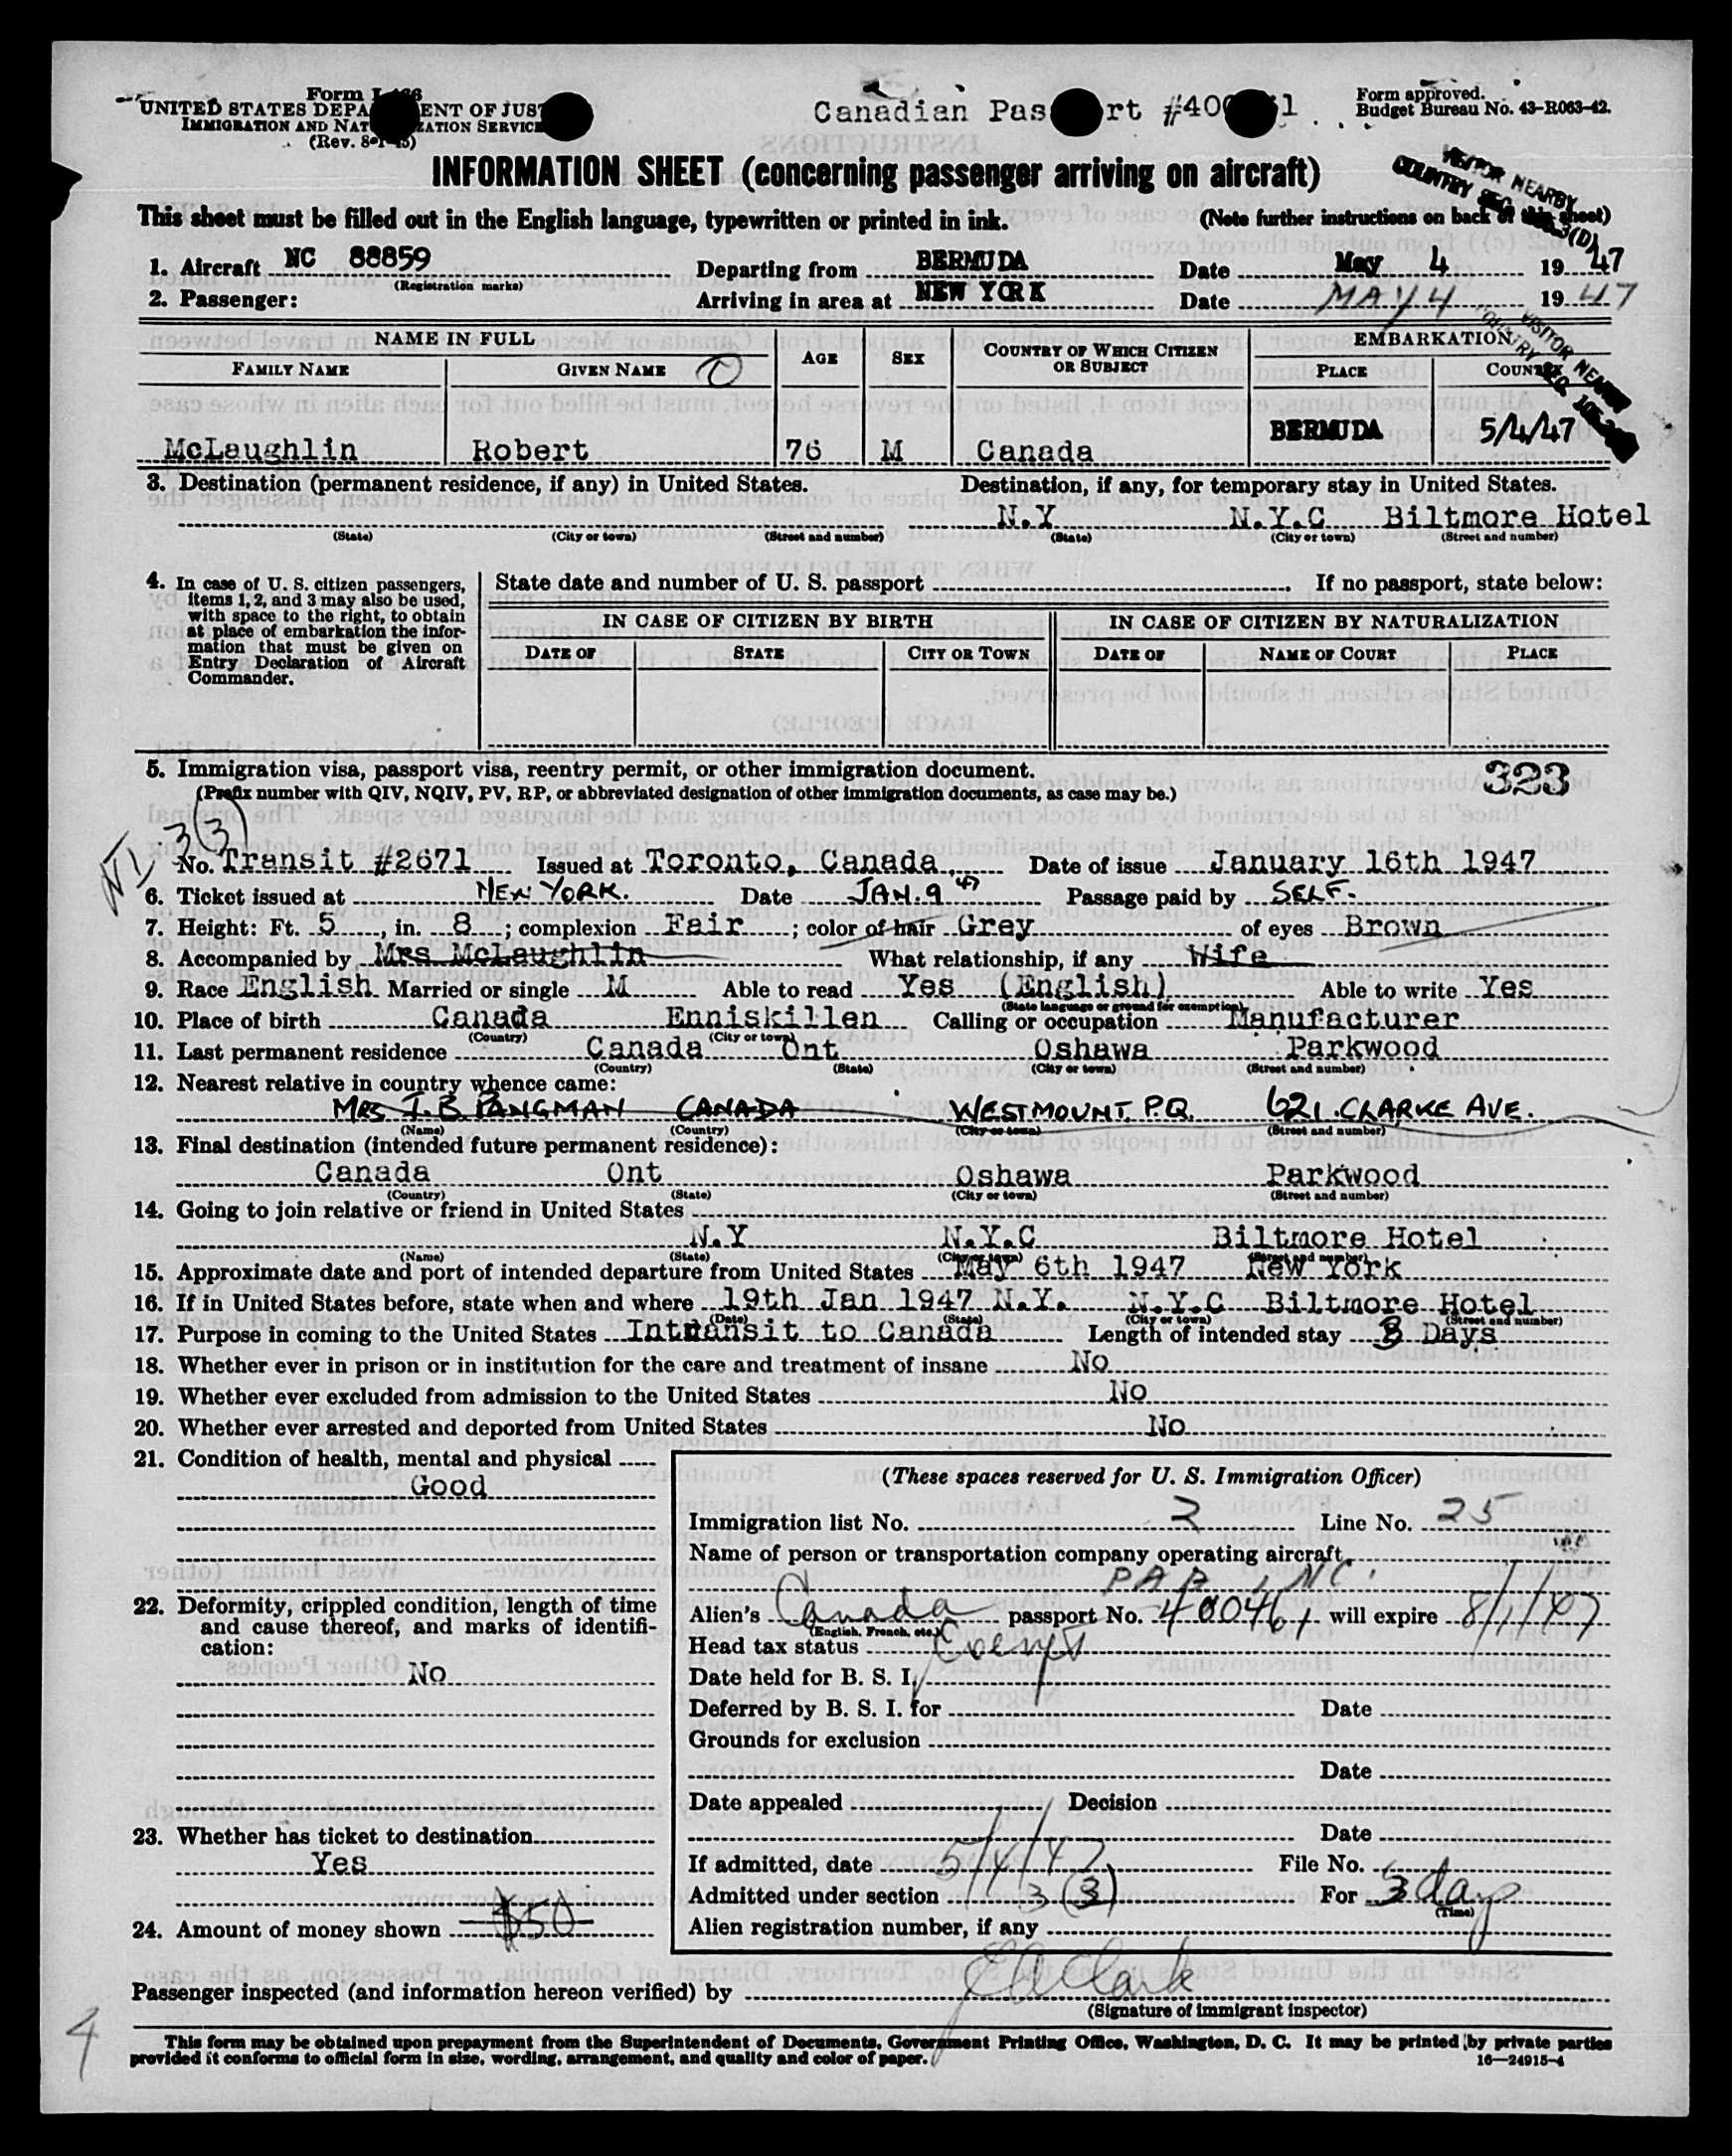 Form I-466
UNITED STATES DEPA ENT OF JUS
IMMIGRATION AND NAT ZATION SERVICE
(Rev. 8-1-45)
Canadian Pas rt #40 1
Form approved.
Budget Bureau No. 43-R063-42.
INFORMATION SHEET (concerning passenger arriving on aircraft)
VISITOR NEARBY
COUNTRY SEC. 3(D)
This sheet must be filled out in the English language, typewritten or printed in ink. (Note further instructions on back of this sheet)
1. Aircraft NC 88859 Departing from BERMUDA Date May 4 1947
(Registration marks)
2. Passenger: Arriving in area at NEW YORK Date MAY 4 1947
VISITOR NEARBY
COUNTRY SEC.
NAME IN FULL AGE SEX COUNTRY OF WHICH CITIZEN OR SUBJECT EMBARKATION
FAMILY NAME GIVEN NAME PLACE COUNTRY
McLaughlin Robert 76 M Canada BERMUDA 5/4/47
3. Destination (permanent residence, if any) in United States. Destination, if any, for temporary stay in United States.
N.Y N.Y.C Biltmore Hotel
(State) (City or town) (Street and number) (State) (City or town) (Street and number)
4. In case of U. S. citizen passengers, items 1, 2, and 3 may also be used, with space to the right, to obtain at place of embarkation the information that must be given on Entry Declaration of Aircraft Commander.
State date and number of U. S. passport If no passport, state below:
IN CASE OF CITIZEN BY BIRTH IN CASE OF CITIZEN BY NATURALIZATION
DATE OF STATE CITY OR TOWN DATE OF NAME OF COURT PLACE
5. Immigration visa, passport visa, reentry permit, or other immigration document. 323
(Prefix number with QIV, NQIV, PV, RP, or abbreviated designation of other immigration documents, as case may be.)
3(3)
No. Transit #2671 Issued at Toronto, Canada Date of issue January 16th 1947
6. Ticket issued at NEW YORK. Date JAN. 9 47 Passage paid by SELF.
7. Height: Ft. 5, in. 8; complexion Fair; color of hair Grey of eyes Brown
8. Accompanied by Mrs McLaughlin What relationship, if any Wife
9. Race English Married or single M Able to read Yes (English) Able to write Yes
(State language or ground for exemption)
10. Place of birth Canada Enniskillen Calling or occupation Manufacturer
(Country) (City or town)
11. Last permanent residence Canada Ont Oshawa Parkwood
(Country) (State) (City or town) (Street and number)
12. Nearest relative in country whence came:
MRS I. B PANGMAN CANADA WESTMOUNT. P.Q. 621. CLARKE AVE.
(Name) (Country) (City or town) (Street and number)
13. Final destination (intended future permanent residence):
Canada Ont Oshawa Parkwood
(Country) (State) (City or town) (Street and number)
14. Going to join relative or friend in United States
N.Y N.Y.C Biltmore Hotel
(Name) (State) (City or town) (Street and number)
15. Approximate date and port of intended departure from United States May 6th 1947 New York
16. If in United States before, state when and where 19th Jan 1947 N.Y. N.Y.C Biltmore Hotel
(Date) (State) (City or town) (Street and number)
17. Purpose in coming to the United States Intransit to Canada Length of intended stay 3 Days
18. Whether ever in prison or in institution for the care and treatment of insane No
19. Whether ever excluded from admission to the United States No
20. Whether ever arrested and deported from United States No
21. Condition of health, mental and physical
Good
22. Deformity, crippled condition, length of time and cause thereof, and marks of identification:
No
23. Whether has ticket to destination
Yes
24. Amount of money shown $50
(These spaces reserved for U. S. Immigration Officer)
Immigration list No. 2 Line No. 25
Name of person or transportation company operating aircraft
P A A INC.
Alien's Canada passport No. 400461 will expire 8/1/47
(English, French, etc.)
Head tax status Exempt
Date held for B. S. I.
Deferred by B. S. I. for Date
Grounds for exclusion
Date
Date appealed Decision
Date
If admitted, date 5/4/47 File No.
Admitted under section 3(3) For 3 days
(Time)
Alien registration number, if any
Passenger inspected (and information hereon verified) by Clark
(Signature of immigrant inspector)
4
This form may be obtained upon prepayment from the Superintendent of Documents, Government Printing Office, Washington, D. C. It may be printed by private parties
provided it conforms to official form in size, wording, arrangement, and quality and color of paper.
16—24915-4